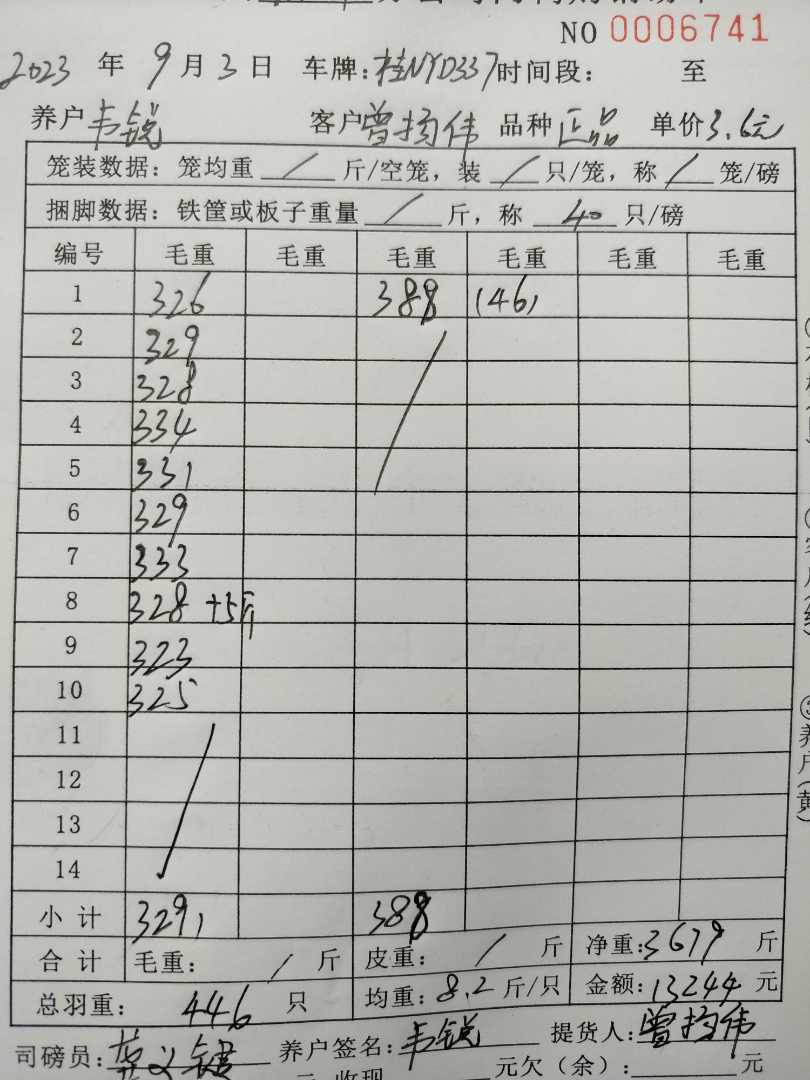 NO 0006741
2023 年 9 月 3 日 车牌:桂NYD337 时间段: 至
养户 韦锐 客户 曾扬伟 品种 正品 单价 3.6元
笼装数据: 笼均重 / 斤/空笼, 装 / 只/笼, 称 / 笼/磅
捆脚数据: 铁筐或板子重量 / 斤, 称 40 只/磅
编号 毛重 毛重 毛重 毛重 毛重 毛重
1 326 388 (46)
2 329
3 328
4 334
5 331
6 329
7 333
8 328 +5斤
9 323
10 325
11
12
13
14
小计 3291 388
合计 毛重: / 斤 皮重: / 斤 净重:3679 斤
总羽重: 446 只 均重: 8.2 斤/只 金额: 13244 元
司磅员: 养户签名: 韦锐 提货人: 曾扬伟
元 收现 元欠(余): 元
养户(黄)